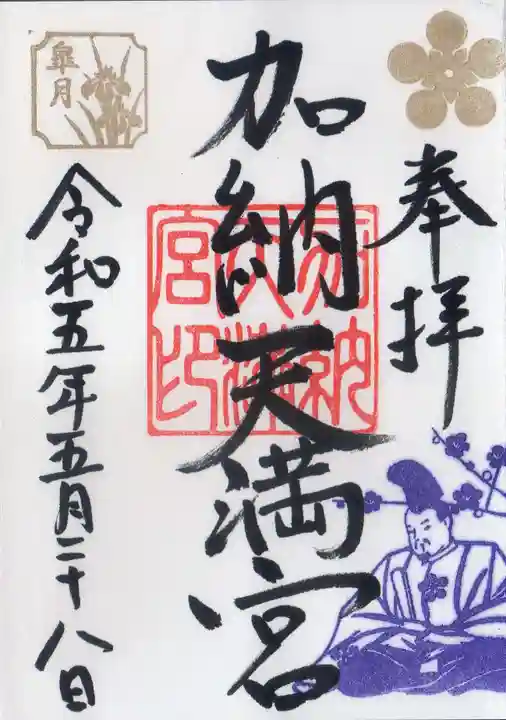 奉拝
加納天満宮
加納天満宮印
皐月
令和五年五月二十八日